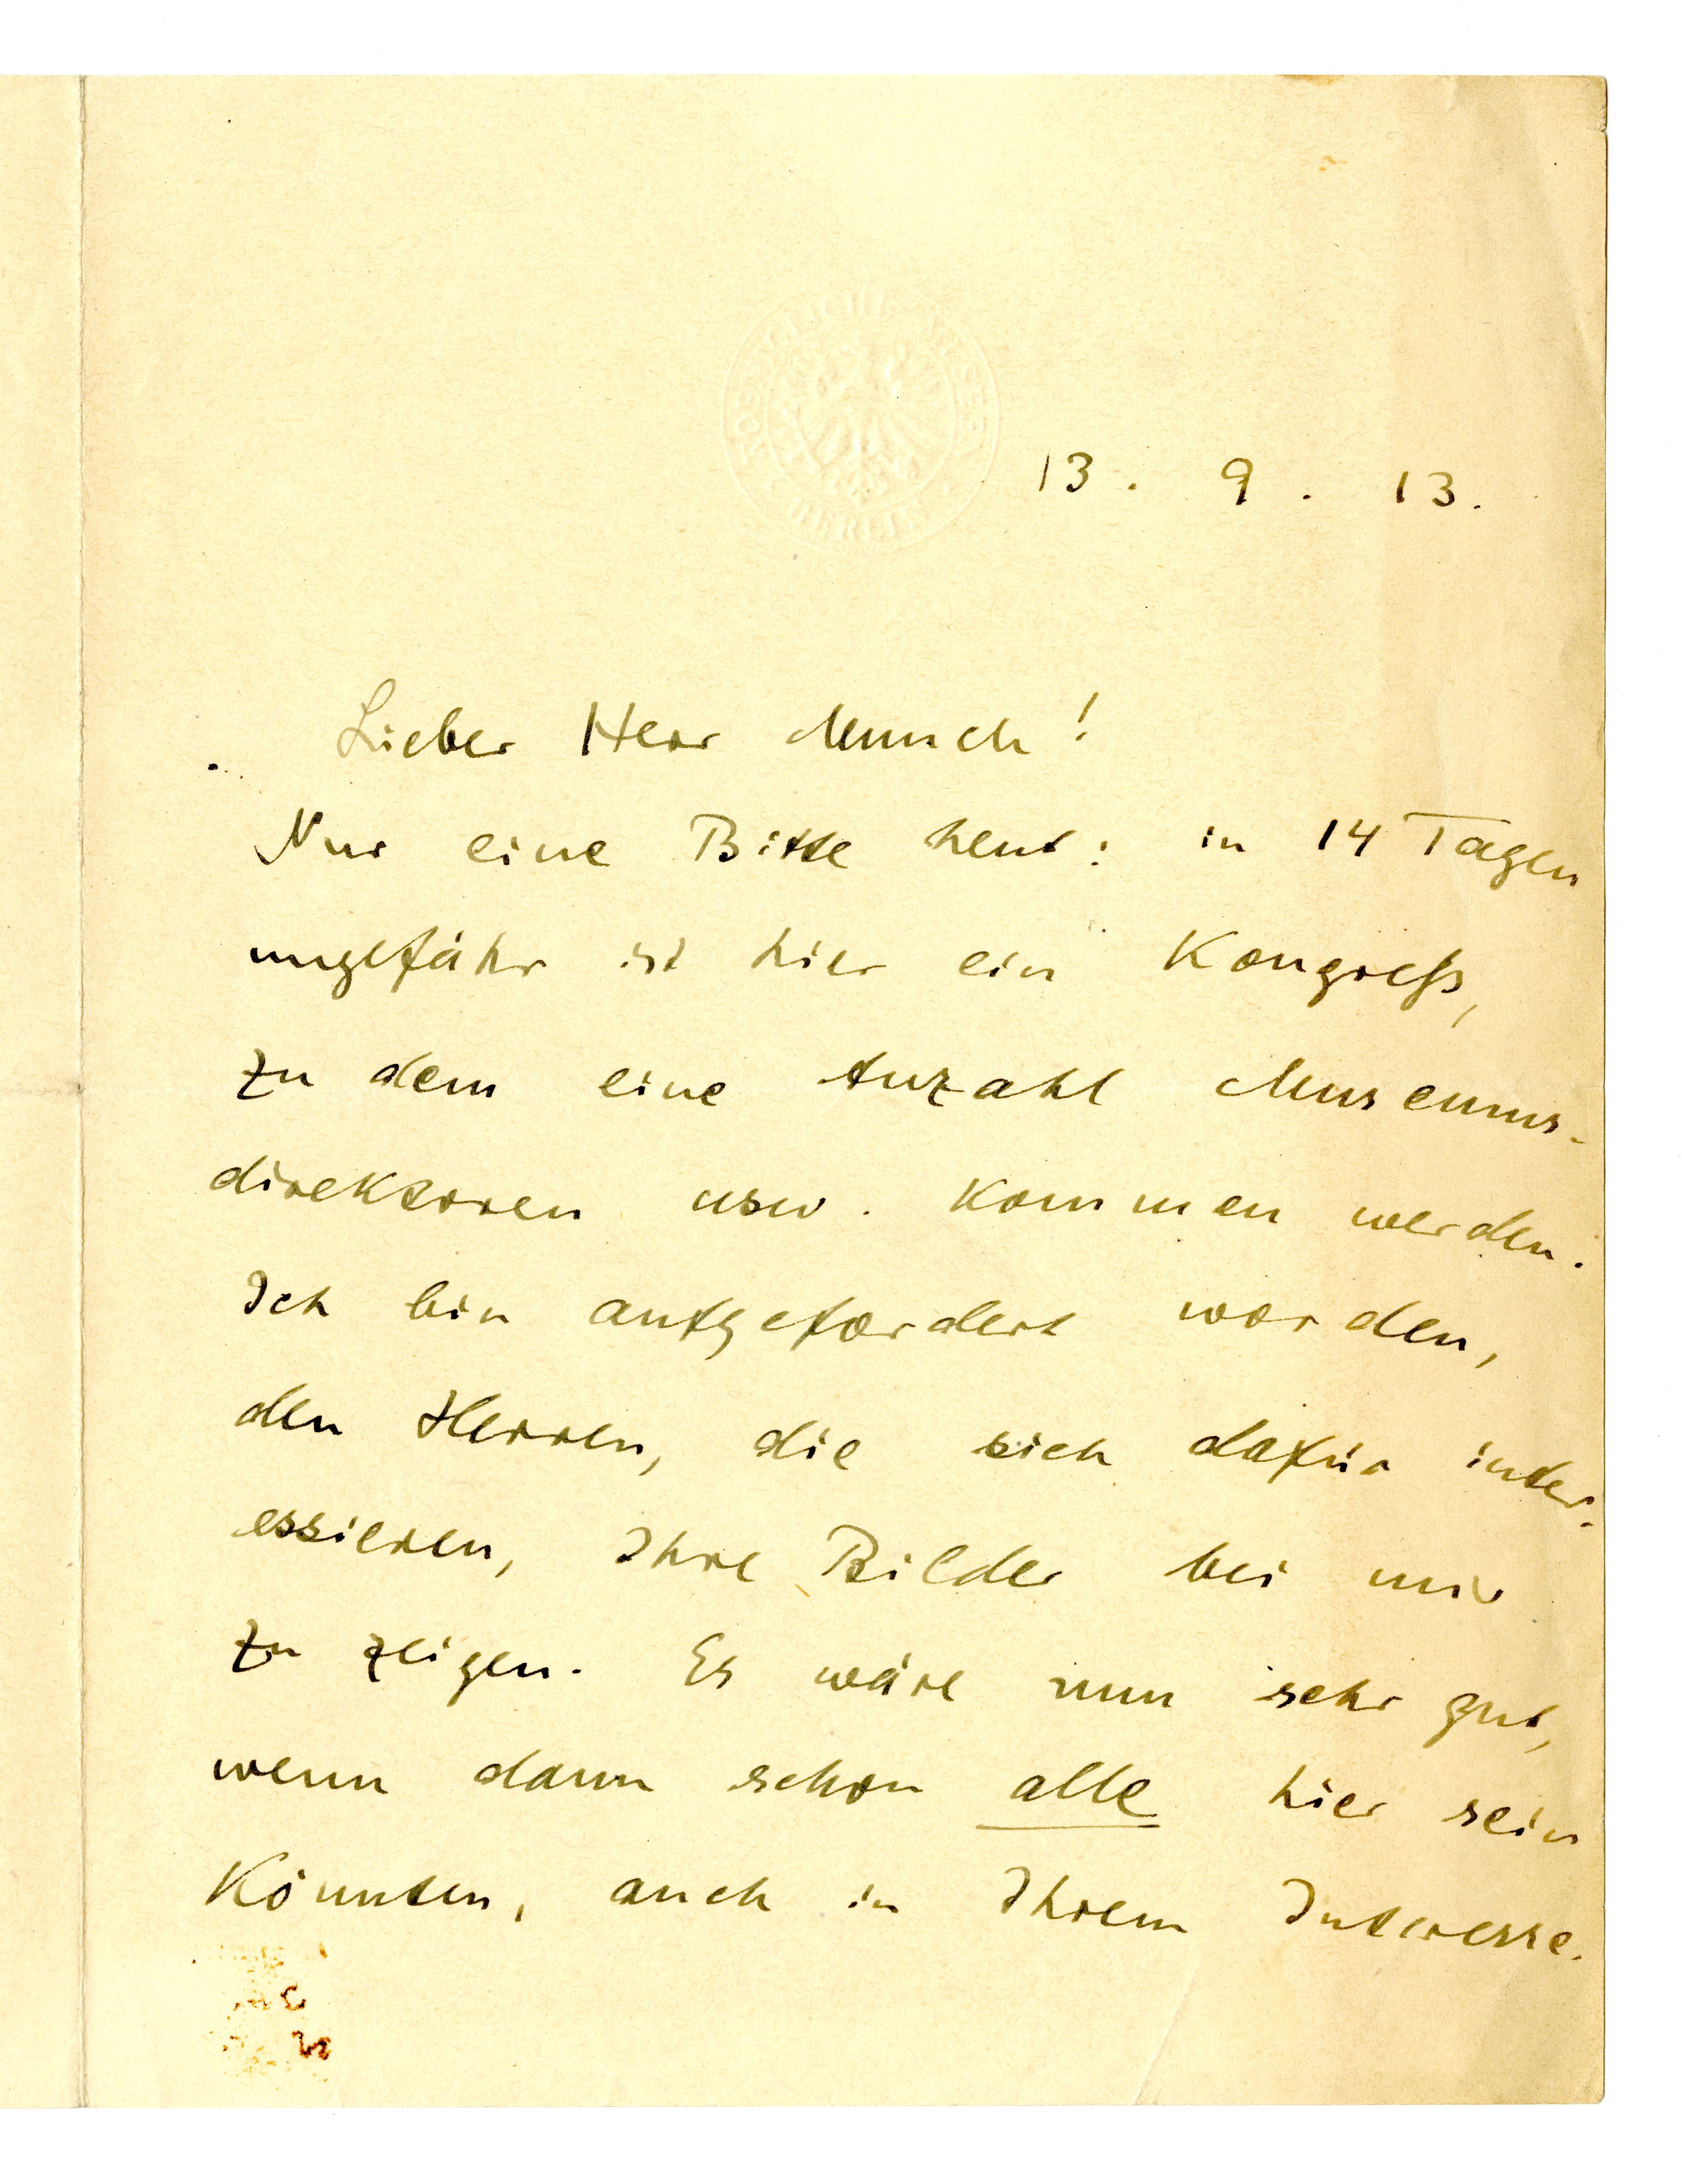 KOENIGLICHE MUSEEN
BERLIN
13. 9. 13.
Lieber Herr Munch!
Nur eine Bitte heut: in 14 Tagen
ungefähr ist hier ein Kongreß,
zu dem eine Anzahl Museums-
direktoren usw. kommen werden.
Ich bin aufgefordert worden,
den Herren, die sich dafür inter-
essieren, Ihre Bilder bei mir
zu zeigen. Es wäre nun sehr gut,
wenn dann schon alle hier sein
könnten, auch in Ihrem Interesse.